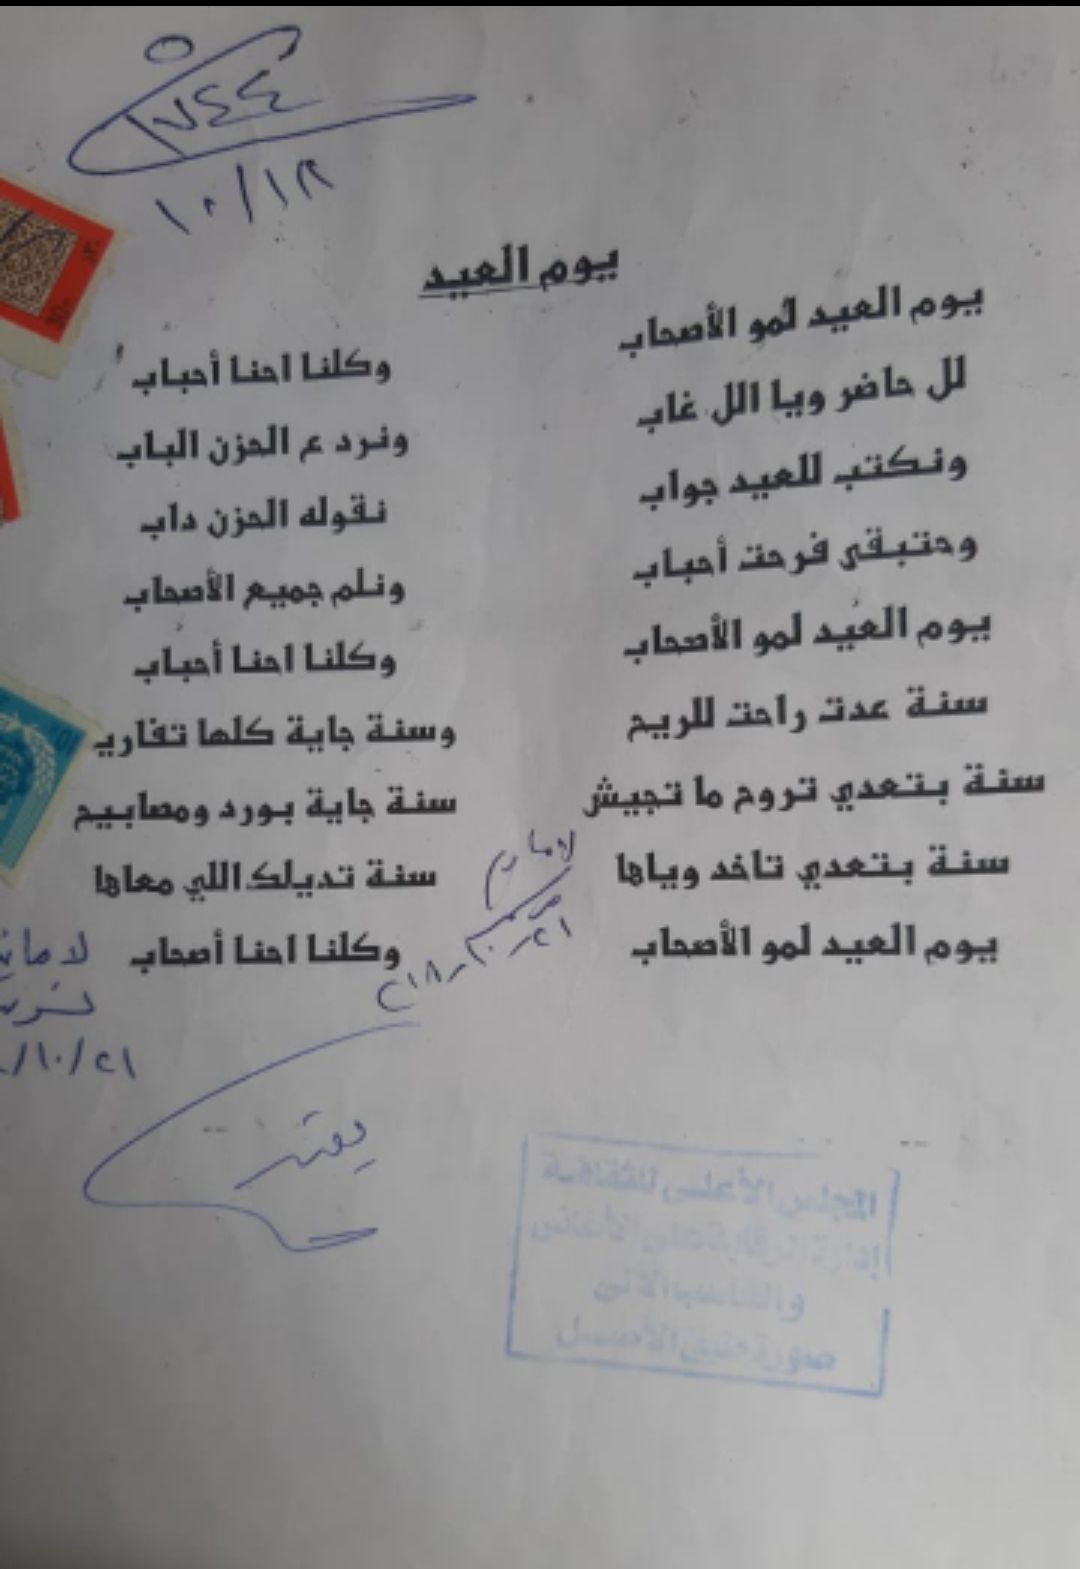 ٧٤٤
١٠/١٢
يوم العيد
يوم العيد لمو الأصحاب وكلنا احنا أحباب
لل حاضر ويا الل غاب ونرد ع الحزن الباب
ونكتب للعيد جواب نقوله الحزن داب
وحتبقى فرحت أحباب ونلم جميع الأصحاب
يوم العيد لمو الأصحاب وكلنا احنا أحباب
سنة عدت راحت للريح وسنة جاية كلها تفاريـ
سنة بتعدي تروح ما تجيش سنة جاية بورد ومصابيح
سنة بتعدي تاخد وياها سنة تديلك اللي معاها
يوم العيد لمو الأصحاب وكلنا احنا أصحاب
لا مانع
٢١/١٠/
يعتمد
المجلس الأعلى للثقافة
صورة طبق الأصل